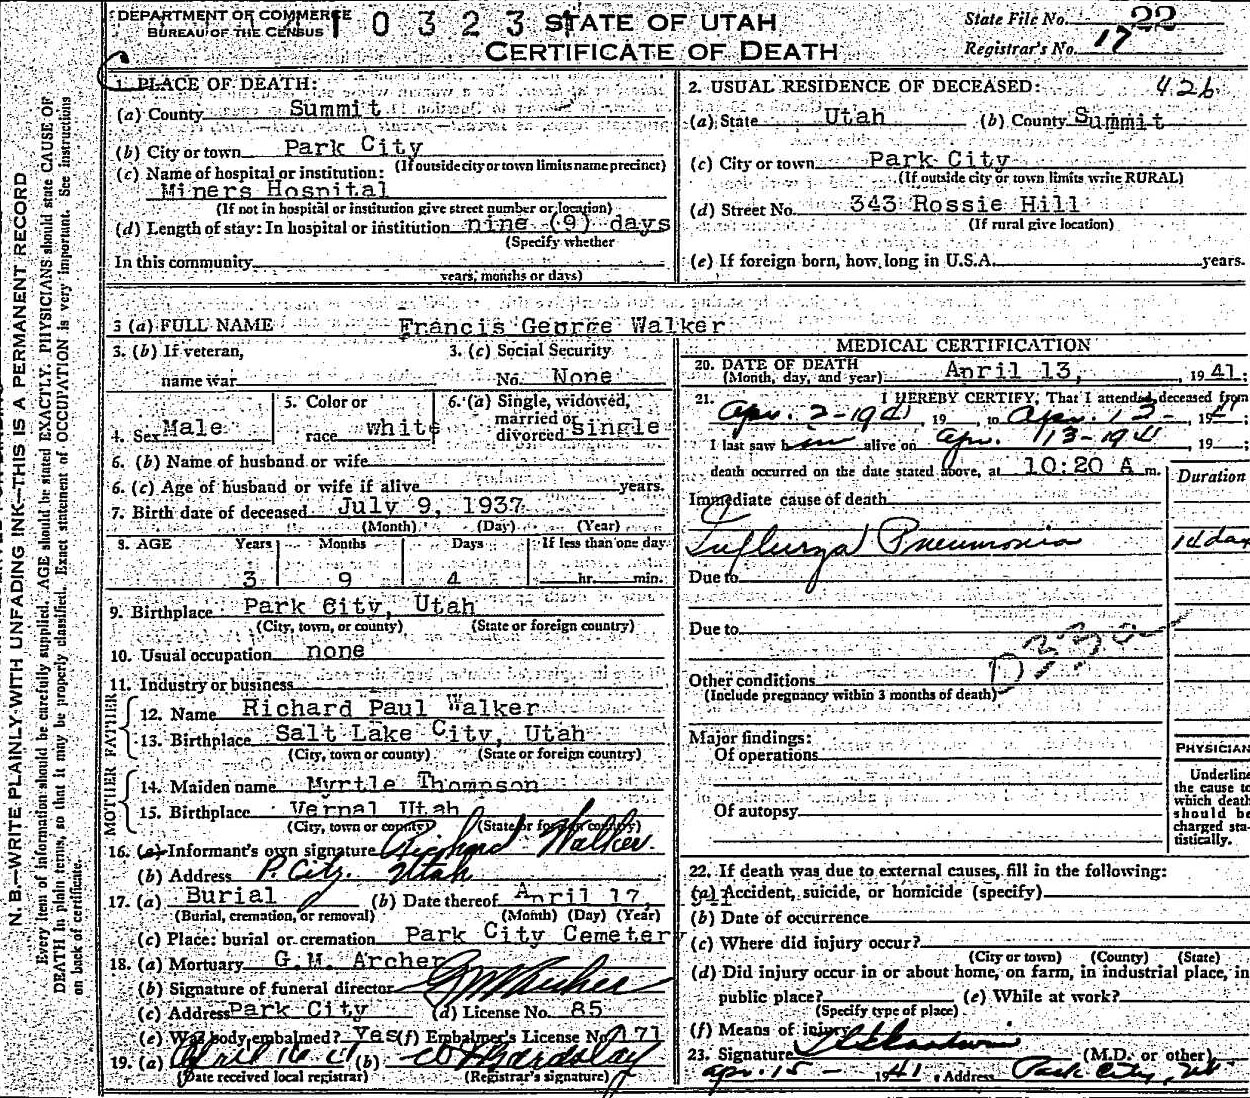 DEPARTMENT OF COMMERCE
BUREAU OF THE CENSUS
1 0 3 2 3 1
STATE OF UTAH
CERTIFICATE OF DEATH
State File No. 22
Registrar's No. 17
N. B.—WRITE PLAINLY WITH UNFADING INK—THIS IS A PERMANENT RECORD
Every item of information should be carefully supplied. AGE should be stated EXACTLY. PHYSICIANS should state CAUSE OF
DEATH in plain terms, so that it may be properly classified. Exact statement of OCCUPATION is very important. See instructions
on back of certificate.
1. PLACE OF DEATH:
(a) County Summit
(b) City or town Park City
(If outside city or town limits name precinct)
(c) Name of hospital or institution:
Miners Hospital
(If not in hospital or institution give street number or location)
(d) Length of stay: In hospital or institution nine (9) days
(Specify whether
In this community
years, months or days)
2. USUAL RESIDENCE OF DECEASED: 426
(a) State Utah (b) County Summit
(c) City or town Park City
(If outside city or town limits write RURAL)
(d) Street No. 343 Rossie Hill
(If rural give location)
(e) If foreign born, how long in U.S.A. years.
3 (a) FULL NAME Francis George Walker
3. (b) If veteran, name war
3. (c) Social Security No. None
4. Sex Male
5. Color or race white
6. (a) Single, widowed, married or divorced single
6. (b) Name of husband or wife
6. (c) Age of husband or wife if alive years.
7. Birth date of deceased July 9, 1937
(Month) (Day) (Year)
8. AGE Years Months Days If less than one day
3 9 4 hr. min.
9. Birthplace Park City, Utah
(City, town, or county) (State or foreign country)
10. Usual occupation none
11. Industry or business
FATHER
12. Name Richard Paul Walker
13. Birthplace Salt Lake City, Utah
(City, town or county) (State or foreign country)
MOTHER
14. Maiden name Myrtle Thompson
15. Birthplace Vernal Utah
(City, town or county) (State or foreign country)
16. (a) Informant's own signature Richard Walker
(b) Address P. City. Utah
17. (a) Burial (b) Date thereof April 17, 941
(Burial, cremation, or removal) (Month) (Day) (Year)
(c) Place: burial or cremation Park City Cemetery
18. (a) Mortuary G.M. Archer
(b) Signature of funeral director GM Archer
(c) Address Park City (d) License No. 85
(e) Was body embalmed? Yes (f) Embalmer's License No. 171
19. (a) April 16 41 (b)
(Date received local registrar) (Registrar's signature)
MEDICAL CERTIFICATION
20. DATE OF DEATH
(Month, day, and year) April 13, , 1941;
21. I HEREBY CERTIFY, That I attended deceased from
Apr. 2-1941, 19 , to Apr. 13- , 1941;
I last saw him alive on Apr. 13-1941, 19 ;
death occurred on the date stated above, at 10:20 A m.
Duration
Immediate cause of death
Influenza Pneumonia 14 days
Due to
Due to
Other conditions
(Include pregnancy within 3 months of death)
Major findings:
Of operations
Of autopsy
PHYSICIAN
Underline
the cause to
which death
should be
charged sta-
tistically.
22. If death was due to external causes, fill in the following:
(a) Accident, suicide, or homicide (specify)
(b) Date of occurrence
(c) Where did injury occur?
(City or town) (County) (State)
(d) Did injury occur in or about home, on farm, in industrial place, in
public place? (e) While at work?
(Specify type of place)
(f) Means of injury
23. Signature (M.D. or other)
Apr. 15- 1941, Address Park City, Ut